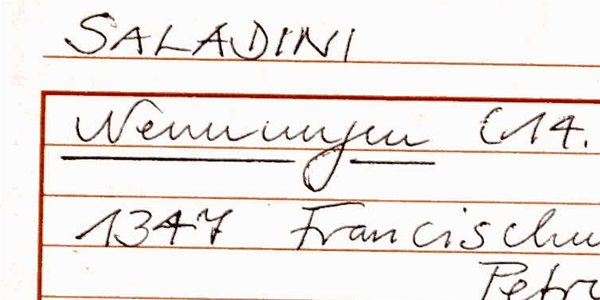 SALADINI
Nennungen (14.
1347 Franciscu
Petru